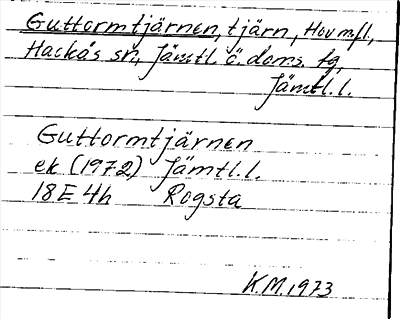 Guttormtjärnen, tjärn, Hov m.fl.,
Hackås sn, Jämtl. ö. doms. tg,
Jämtl.l.
Guttormtjärnen
ek (1972) Jämtl.l.
18E 4h Rogsta
K.M. 1973